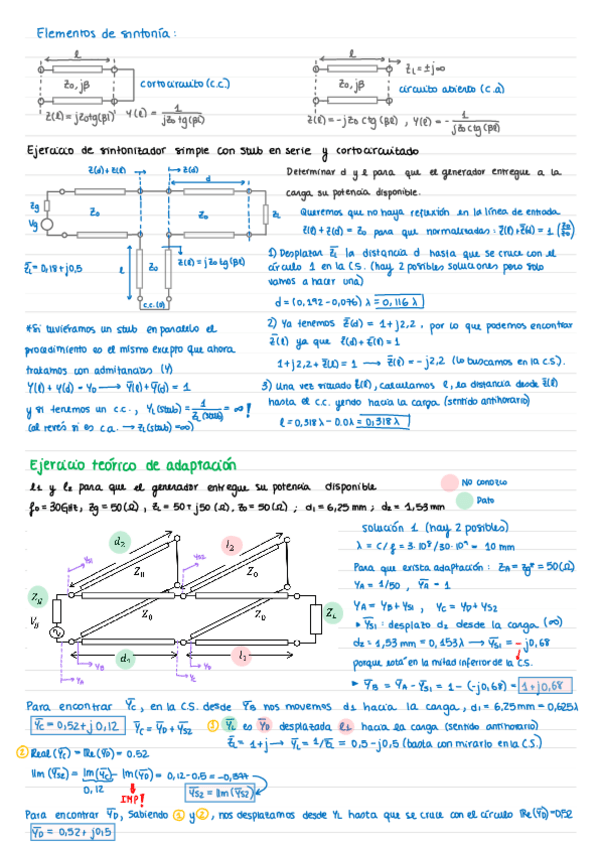 Elementos de sintonía:
l
Z0, jβ
cortocircuito (c.c.)
Z(l) = jZ0tg(βl) Y(l) = 1/jZ0tg(βl)
l
Z0, jβ
ZL = ±j∞
circuito abierto (c.a)
Z(l) = -jZ0 ctg(βl) , Y(l) = - 1/jZ0 ctg(βl)
Ejercicio de sintonizador simple con stub en serie y cortocircuitado
Z(d) + Z(l)
Z(d)
d
Zg
Vg
Z0
Z0
ZL
Z̄L = 0,18 + j0,5
l
Z0
Z(l) = jZ0 tg(βl)
c.c. (0)
Determinar d y l para que el generador entregue a la
carga su potencia disponible.
Queremos que no haya reflexión en la línea de entrada
Z(l) + Z(d) = Z0 para que normalizadas: Z̄(l) + Z̄(d) = 1 (Z0/Z0)
1) Desplazar Z̄L la distancia d hasta que se cruce con el
círculo 1 en la CS. (hay 2 posibles soluciones pero solo
vamos a hacer una)
d = (0,192 - 0,076) λ = 0,116 λ
2) Ya tenemos Z̄(d) = 1 + j2,2, por lo que podemos encontrar
Z̄(l) ya que Z̄(d) + Z̄(l) = 1
1 + j2,2 + Z̄(l) = 1 → Z̄(l) = -j2,2 (lo buscamos en la C.S.)
3) Una vez situado Z̄(l), calculamos l, la distancia desde Z̄(l)
hasta el c.c. yendo hacia la carga (sentido antihorario)
l = 0,318 λ - 0.0 λ = 0,318 λ
*Si tuviéramos un stub en paralelo el
procedimiento es el mismo excepto que ahora
tratamos con admitancias (Y)
Y(l) + Y(d) = Y0 → Ȳ(l) + Ȳ(d) = 1
y si tenemos un c.c., YL(stub) = 1/ZL(stub) = ∞!
(al revés si es c.a. → ZL(stub) = ∞)
Ejercicio teórico de adaptación
l1 y l2 para que el generador entregue su potencia disponible
f0 = 30GHz, Zg = 50 (Ω), ZL = 50 + j50 (Ω), Z0 = 50 (Ω) ; d1 = 6,25 mm ; d2 = 1,53 mm
No conozco
Dato
d2
l2
YS1
YS2
Z0
Z0
Z0
Z0
ZL
YA
YB
YC
YD
d1
solución 1 (hay 2 posibles)
λ = c/f = 3·10⁸/30·10⁹ = 10 mm
Para que exista adaptación: ZA = Zg* = 50 (Ω)
YA = 1/50 , ȲA = 1
YA = YB + YS1 , YC = YD + YS2
ȲS1: desplazo d2 desde la carga (∞)
d2 = 1,53 mm = 0,153 λ → ȲS1 = -j0,68
porque está en la mitad inferior de la C.S.
ȲB = ȲA - ȲS1 = 1 - (-j0,68) = 1 + j0,68
Para encontrar ȲC, en la C.S. desde ȲB nos movemos d1 hacia la carga, d1 = 6.25mm = 0,625 λ
ȲC = 0,52 + j 0,12 ȲC = ȲD + ȲS2 ① ȲL es ȲD desplazada l1 hacia la carga (sentido antihorario)
Z̄L = 1 + j → ȲL = 1/Z̄L = 0,5 - j0,5 (basta con mirarlo en la C.S.)
② Real (ȲC) = Re(ȲD) = 0.52
Im (ȲS2) = Im(ȲC) - Im(ȲD) = 0,12 - 0,5 = -0,377
0,12
IMP!
ȲS2 = Im(ȲS2)
Para encontrar ȲD, sabiendo ① y ②, nos desplazamos desde YL hasta que se cruce con el círculo Re(ȲD) = 0,52
ȲD = 0,52 + j0,5